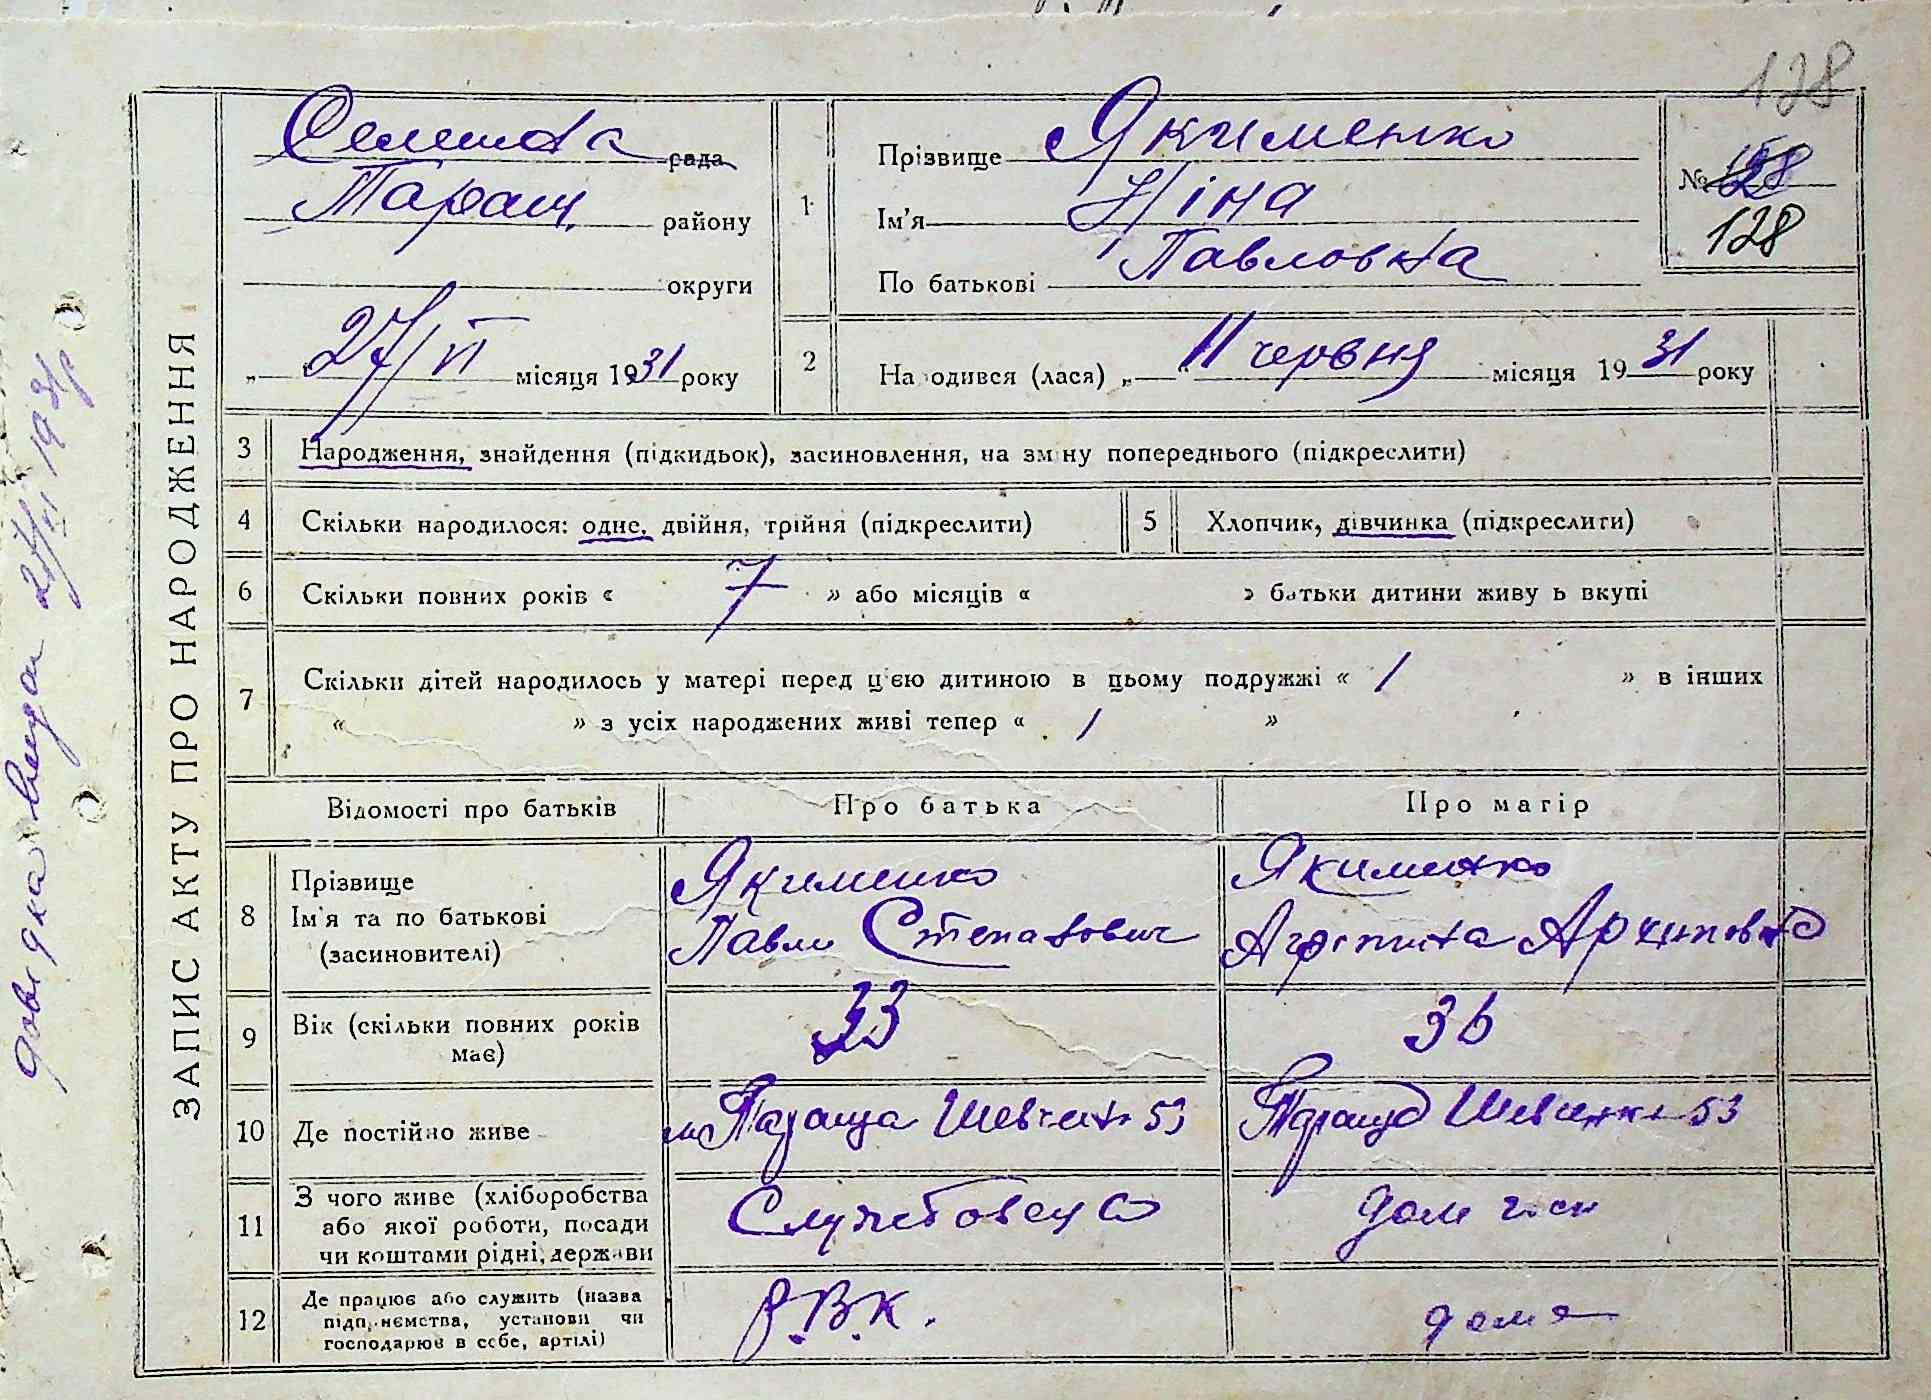 128
ЗАПИС АКТУ ПРО НАРОДЖЕННЯ
Селищна рада
Таращ. району
округи
„ 27/VI місяця 1931 року
1
Прізвище Якименко
Ім'я Ніна
По батькові Павловна
№ 128
128
2
Народився (лася) „ 11 червня місяця 1931 року
3 Народження, знайдення (підкидьок), засиновлення, на зміну попереднього (підкреслити)
4 Скільки народилося: одне, двійня, трійня (підкреслити)
5 Хлопчик, дівчинка (підкреслити)
6 Скільки повних років « 7 » або місяців « » батьки дитини живуть вкупі
7 Скільки дітей народилось у матері перед цією дитиною в цьому подружжі « 1 » в інших
« » з усіх народжених живі тепер « 1 »
Відомості про батьків Про батька Про матір
8 Прізвище Якименко Якименко
Ім'я та по батькові Павло Степанович Агрипина Архиповна
(засиновителі)
9 Вік (скільки повних років має) 33 36
10 Де постійно живе м Тараща Шевченк 53 Тараща Шевченк 53
11 З чого живе (хліборобства або якої роботи, посади чи коштами рідні, держави Службовець Дом госп
12 Де працює або служить (назва підприємства, установи чи господарює в себе, артілі) Р.В.К. дома
Довідка видан 27/VI 1931 р